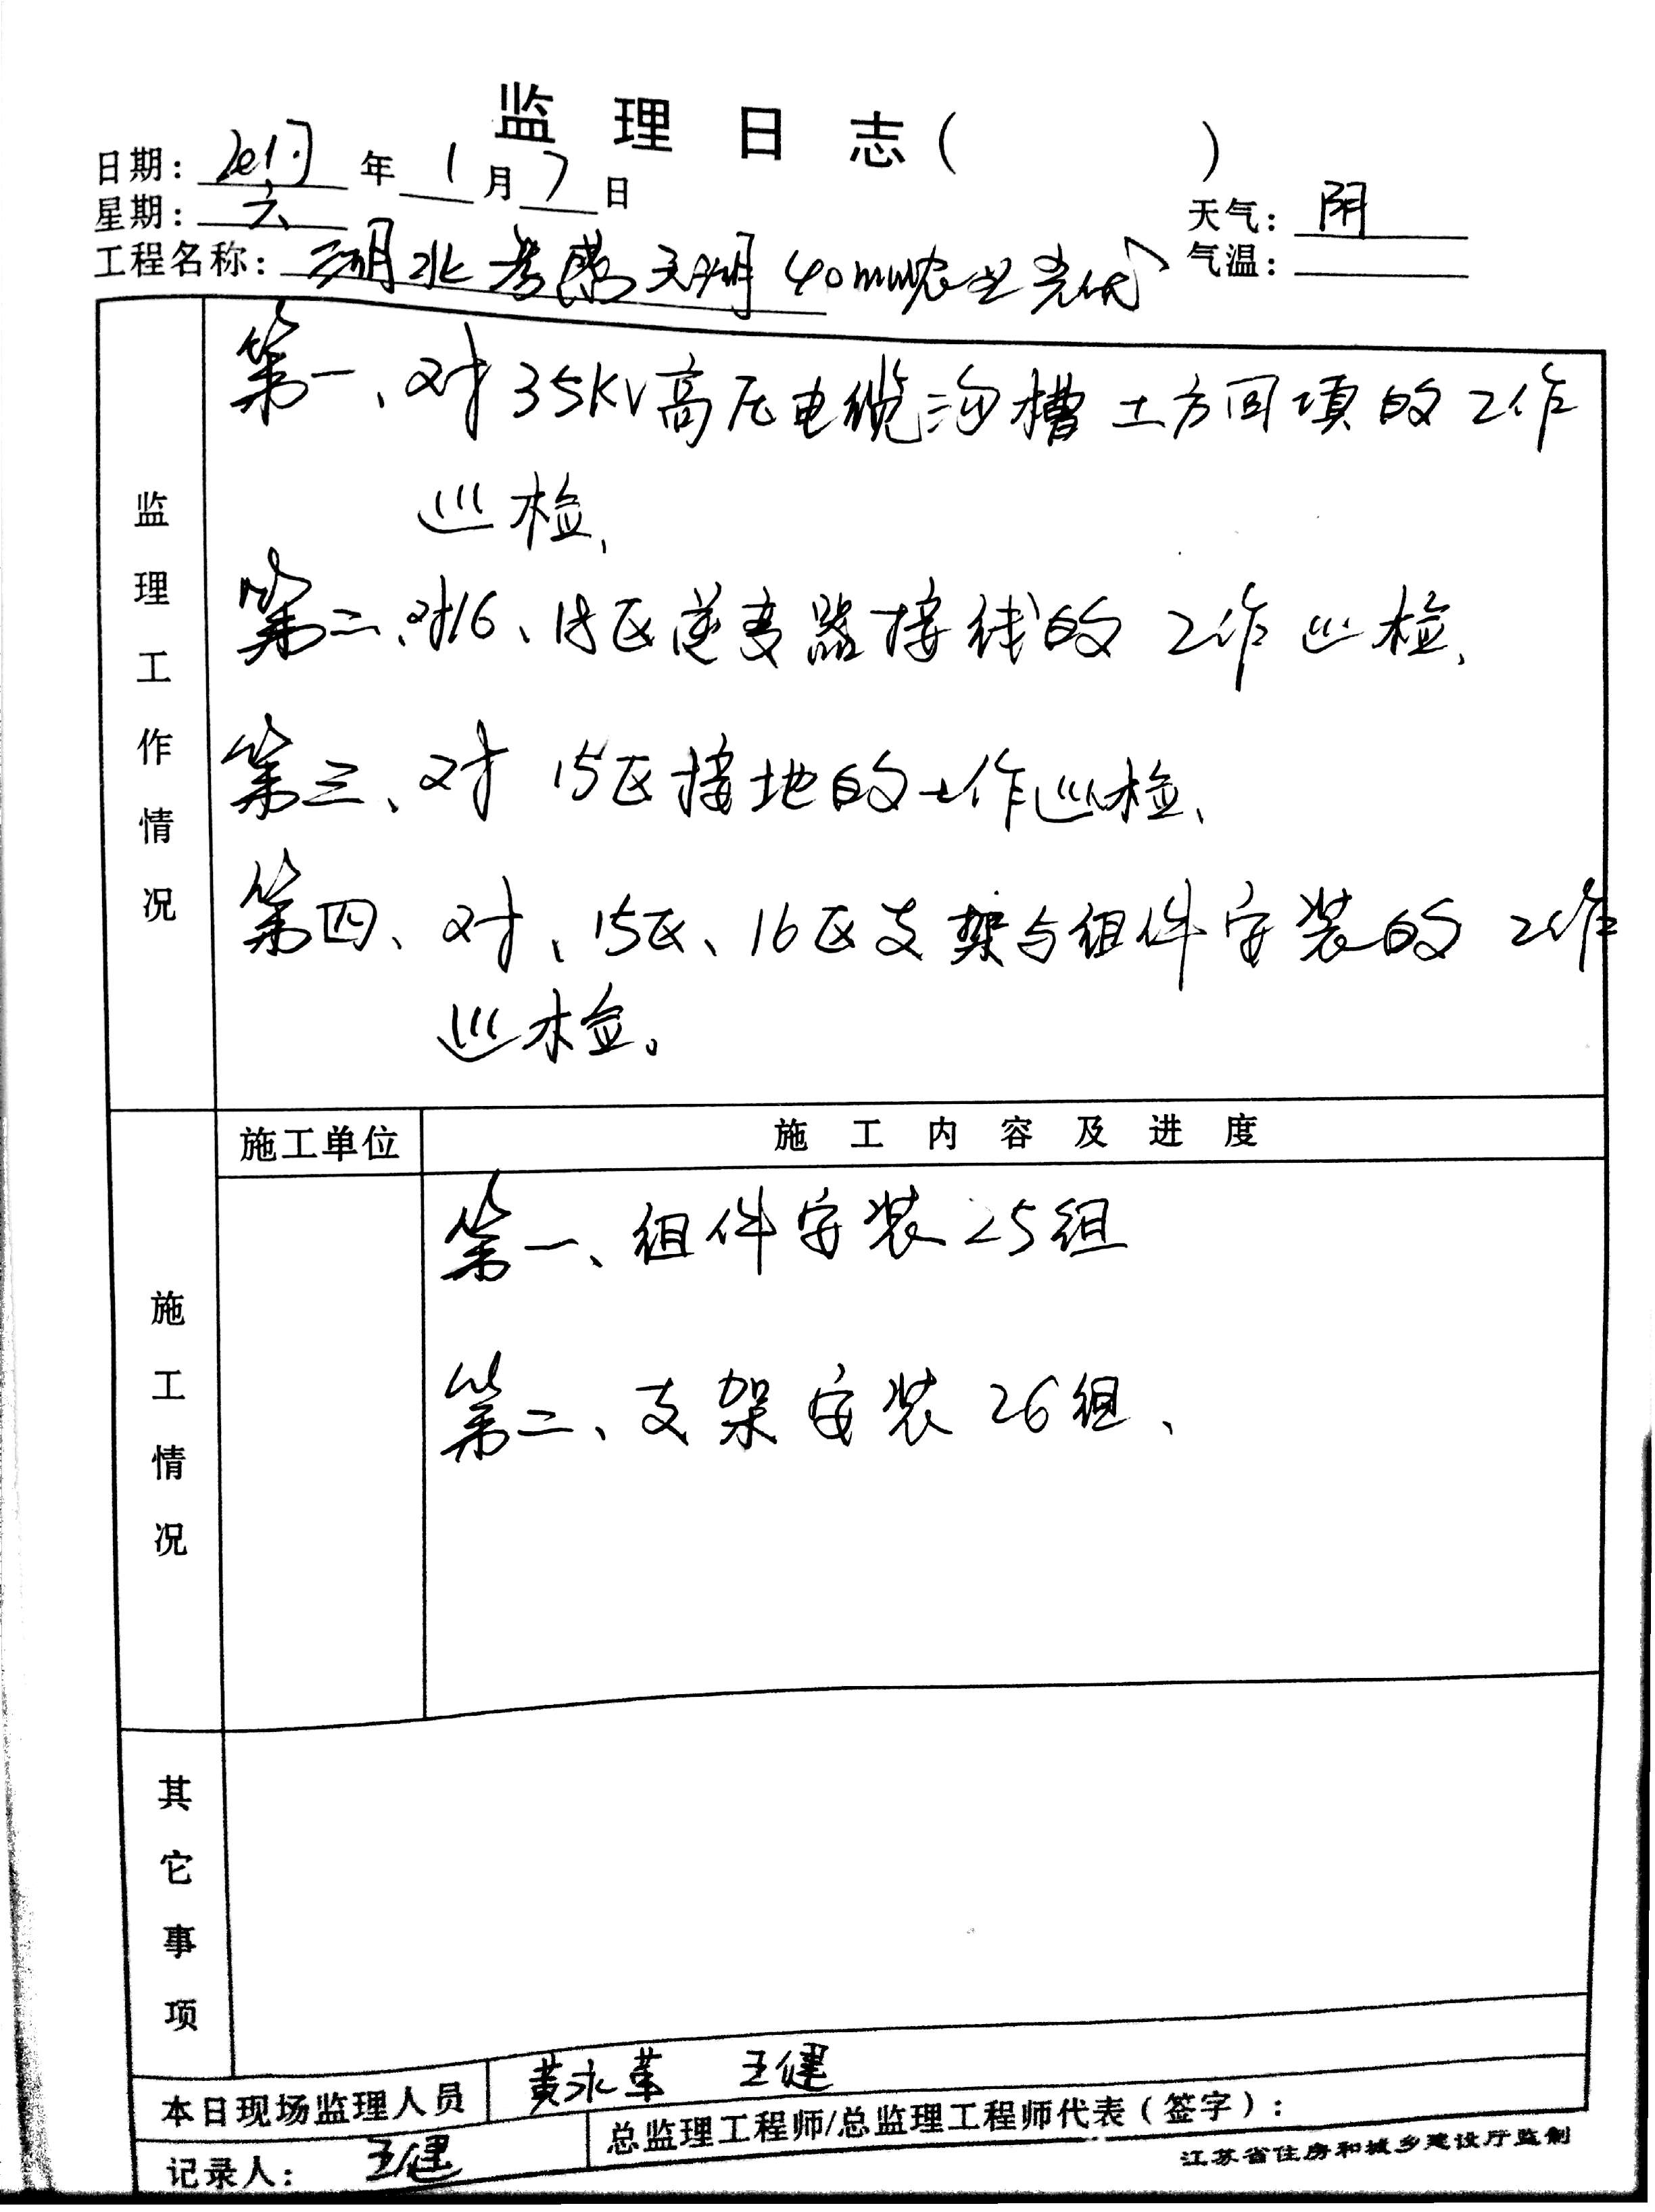 监理日志( )
日期: 2017 年 1 月 7 日
星期: 六
天气: 阴
工程名称: 湖北孝感天湖40mw农业光伏
气温:
监理工作情况
第一、对35KV高压电缆沟槽土方回填的工作
巡检、
第二、对16、18区逆变器接线的工作巡检、
第三、对15区接地的工作巡检、
第四、对、15区、16区支架与组件安装的工作
巡检。
施工单位
施工内容及进度
施工情况
第一、组件安装25组
第二、支架安装26组、
其它事项
本日现场监理人员 黄永革 王健
记录人: 王健
总监理工程师/总监理工程师代表(签字):
江苏省住房和城乡建设厅监制